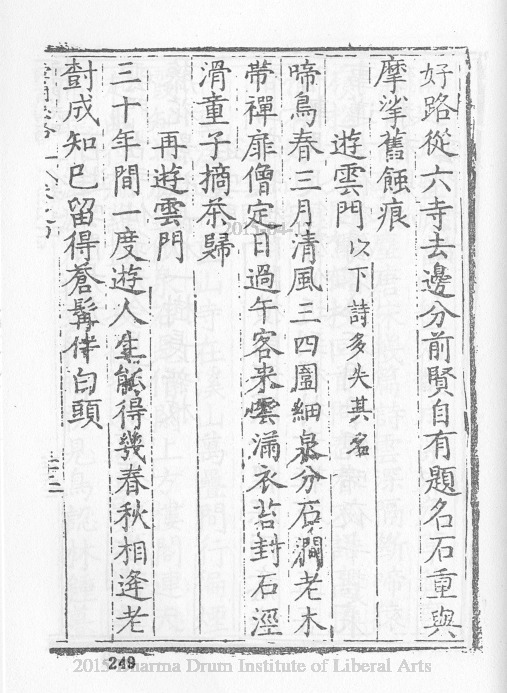 好路從六寺去邊分前賢自有題名石重與
摩挲舊蝕痕
遊雲門以下詩多失其名
啼鳥春三月清風三四圍細泉分石澗老木
帶禪扉僧定日過午客來雲滿衣苔封石涇
滑童子摘茶歸
再遊雲門
三十年間一度遊人生能得幾春秋相逢老
樹成知巳留得蒼髯伴白頭
249
2015 Dharma Drum Institute of Liberal Arts